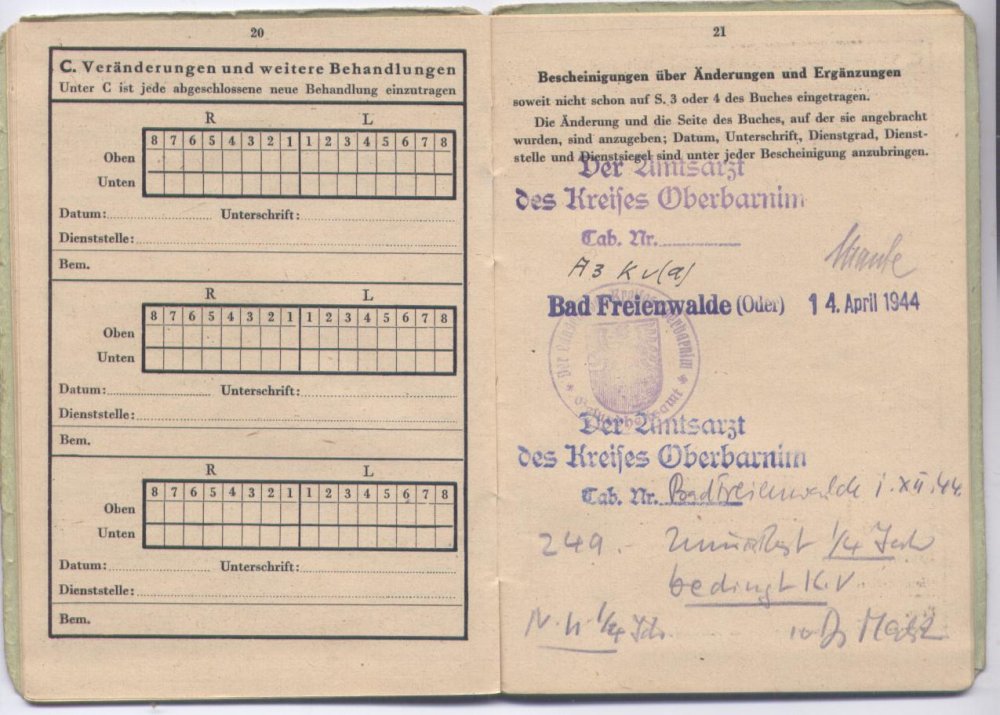 20
C. Veränderungen und weitere Behandlungen
Unter C ist jede abgeschlossene neue Behandlung einzutragen
R L
8 7 6 5 4 3 2 1 1 2 3 4 5 6 7 8
Oben
Unten
Datum: Unterschrift:
Dienststelle:
Bem.
R L
8 7 6 5 4 3 2 1 1 2 3 4 5 6 7 8
Oben
Unten
Datum: Unterschrift:
Dienststelle:
Bem.
R L
8 7 6 5 4 3 2 1 1 2 3 4 5 6 7 8
Oben
Unten
Datum: Unterschrift:
Dienststelle:
Bem.
21
Bescheinigungen über Änderungen und Ergänzungen
soweit nicht schon auf S. 3 oder 4 des Buches eingetragen.
Die Änderung und die Seite des Buches, auf der sie angebracht
wurden, sind anzugeben; Datum, Unterschrift, Dienstgrad, Dienst-
stelle und Dienstsiegel sind unter jeder Bescheinigung anzubringen.
Der Amtsarzt
des Kreises Oberbarnim
Tab. Nr.
A3 Kv(a)
Bad Freienwalde (Oder) 14. April 1944
Der Amtsarzt
des Kreises Oberbarnim
Tab. Nr. Bad Freienwalde 1.XII.44.
249. - 1/4 Jahr
bedingt K.V.
N. U. 1/4 Jhr.